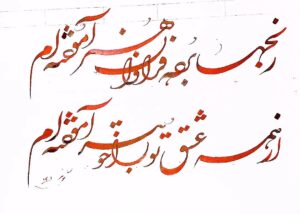 رنجها برده فراوان هنر آموخته ام
از همه عشق تو را خوبتر آموخته ام